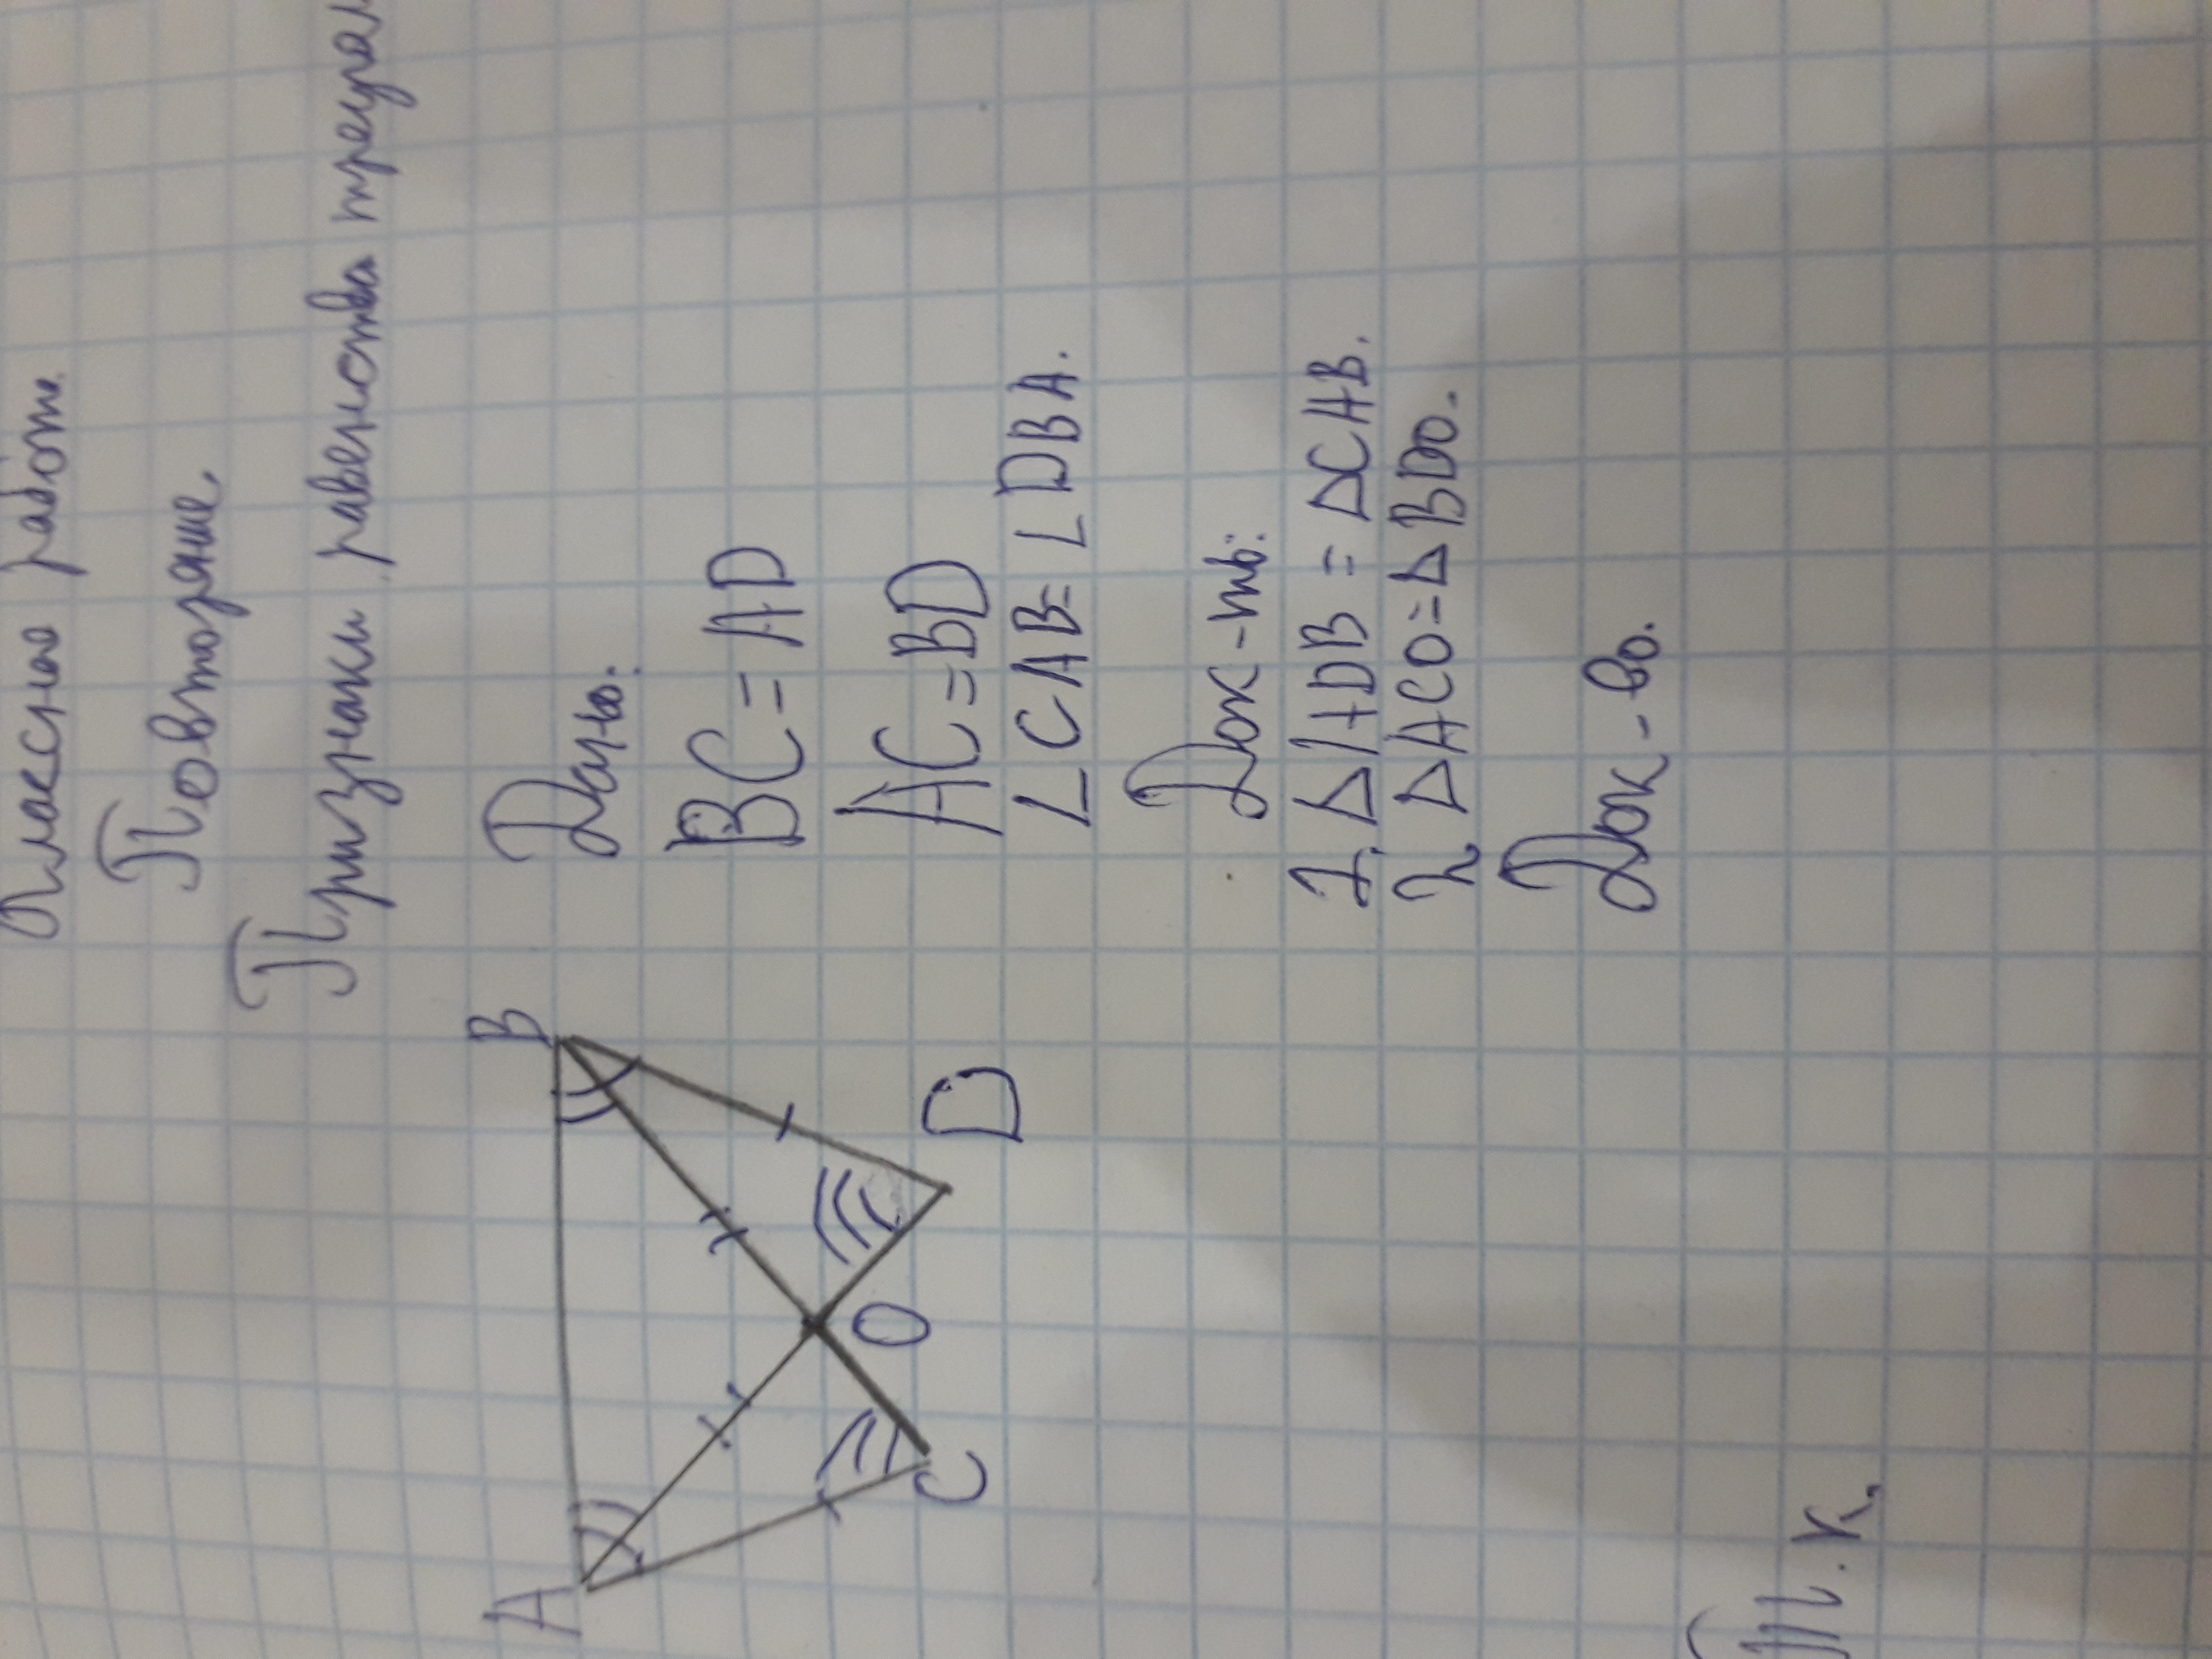 Классная работа
Повторение.
Признаки равенства треугол
Дано:
BC = AD
AC = BD
∠CAB = ∠DBA.
Док-ть:
1. ΔADB = ΔCAB.
2. ΔACO = ΔBDO.
Док-во.
A
B
C
O
D
Т.к.